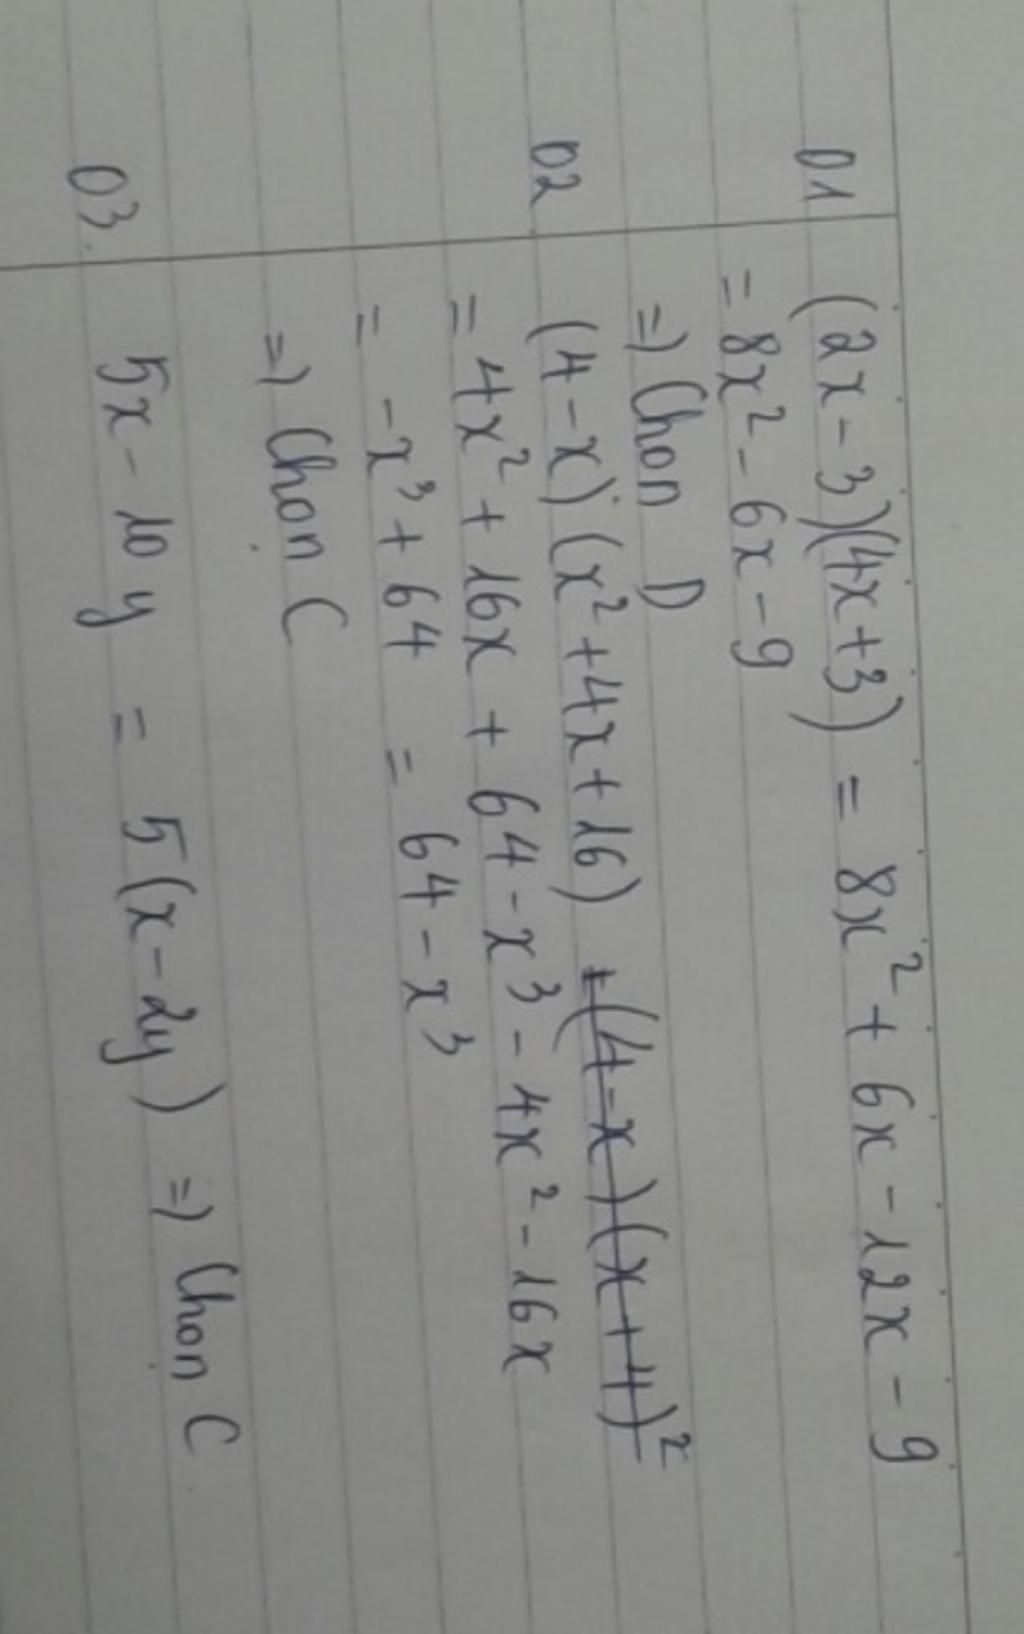 01 (2x - 3)(4x + 3) = 8x² + 6x - 12x - 9
= 8x² - 6x - 9
=) Chọn D
02 (4 - x)(x² + 4x + 16) +(4 - x)(x + 4)²
= 4x² + 16x + 64 - x³ - 4x² - 16x
= -x³ + 64 = 64 - x³
=) Chọn C
03. 5x - 10y = 5(x - 2y) =) Chọn C